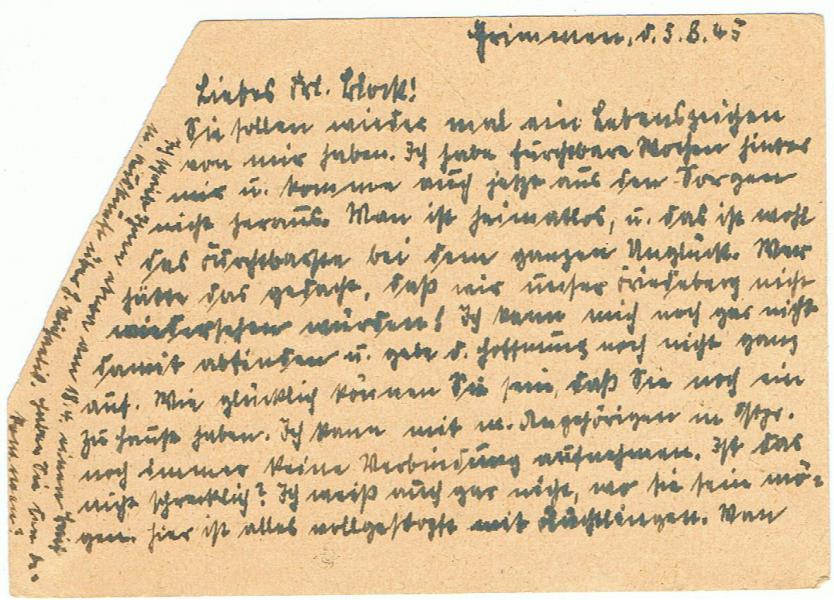 Grimmen, d. 3.8.45
Liebes Frl. Block!
Sie sollen wieder mal ein Lebenszeichen
von mir haben. Ich habe furchtbare Wochen hinter
mir u. komme auch jetzt aus den Sorgen
nicht heraus. Man ist heimatlos, u. das ist wohl
das Furchtbarste bei dem ganzen Unglück. Wer
hätte das gedacht, daß wir unser Friedeberg nicht
wiedersehen würden! Ich kann mich noch gar nicht
damit abfinden u. gebe d. Hoffnung noch nicht ganz
auf. Wie glücklich können Sie sein, daß Sie noch ein
zu Hause haben. Ich kann mit m. Angehörigen in Ostpr.
noch immer keine Verbindung aufnehmen. Ist das
nicht schrecklich? Ich weiß auch gar nicht, wo sie sein mö-
gen. Hier ist alles vollgestopft mit Flüchtlingen. Man
Ich schrieb Ihnen schon am 18.4. einen Brief
u. haben Sie den be-
kommen?